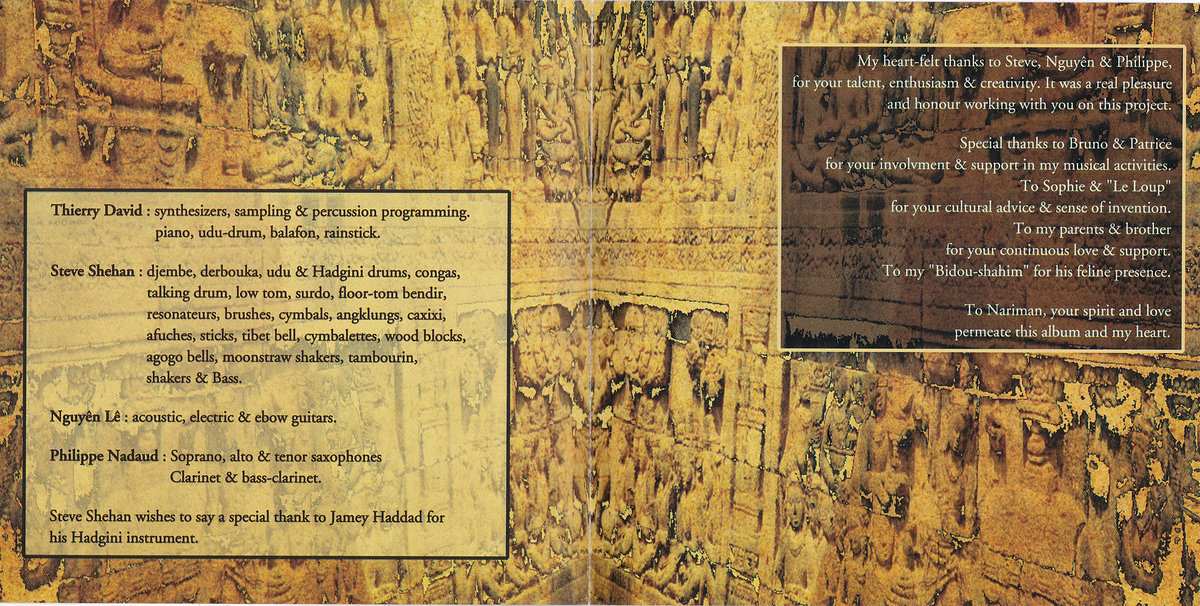 Thierry David : synthesizers, sampling & percussion programming.
piano, udu-drum, balafon, rainstick.
Steve Shehan : djembe, derbouka, udu & Hadgini drums, congas,
talking drum, low tom, surdo, floor-tom bendir,
resonateurs, brushes, cymbals, angklungs, caxixi,
afuches, sticks, tibet bell, cymbalettes, wood blocks,
agogo bells, moonstraw shakers, tambourin,
shakers & Bass.
Nguyên Lê : acoustic, electric & ebow guitars.
Philippe Nadaud : Soprano, alto & tenor saxophones
Clarinet & bass-clarinet.
Steve Shehan wishes to say a special thank to Jamey Haddad for
his Hadgini instrument.
My heart-felt thanks to Steve, Nguyên & Philippe,
for your talent, enthusiasm & creativity. It was a real pleasure
and honour working with you on this project.
Special thanks to Bruno & Patrice
for your involvment & support in my musical activities.
To Sophie & "Le Loup"
for your cultural advice & sense of invention.
To my parents & brother
for your continuous love & support.
To my "Bidou-shahim" for his feline presence.
To Nariman, your spirit and love
permeate this album and my heart.